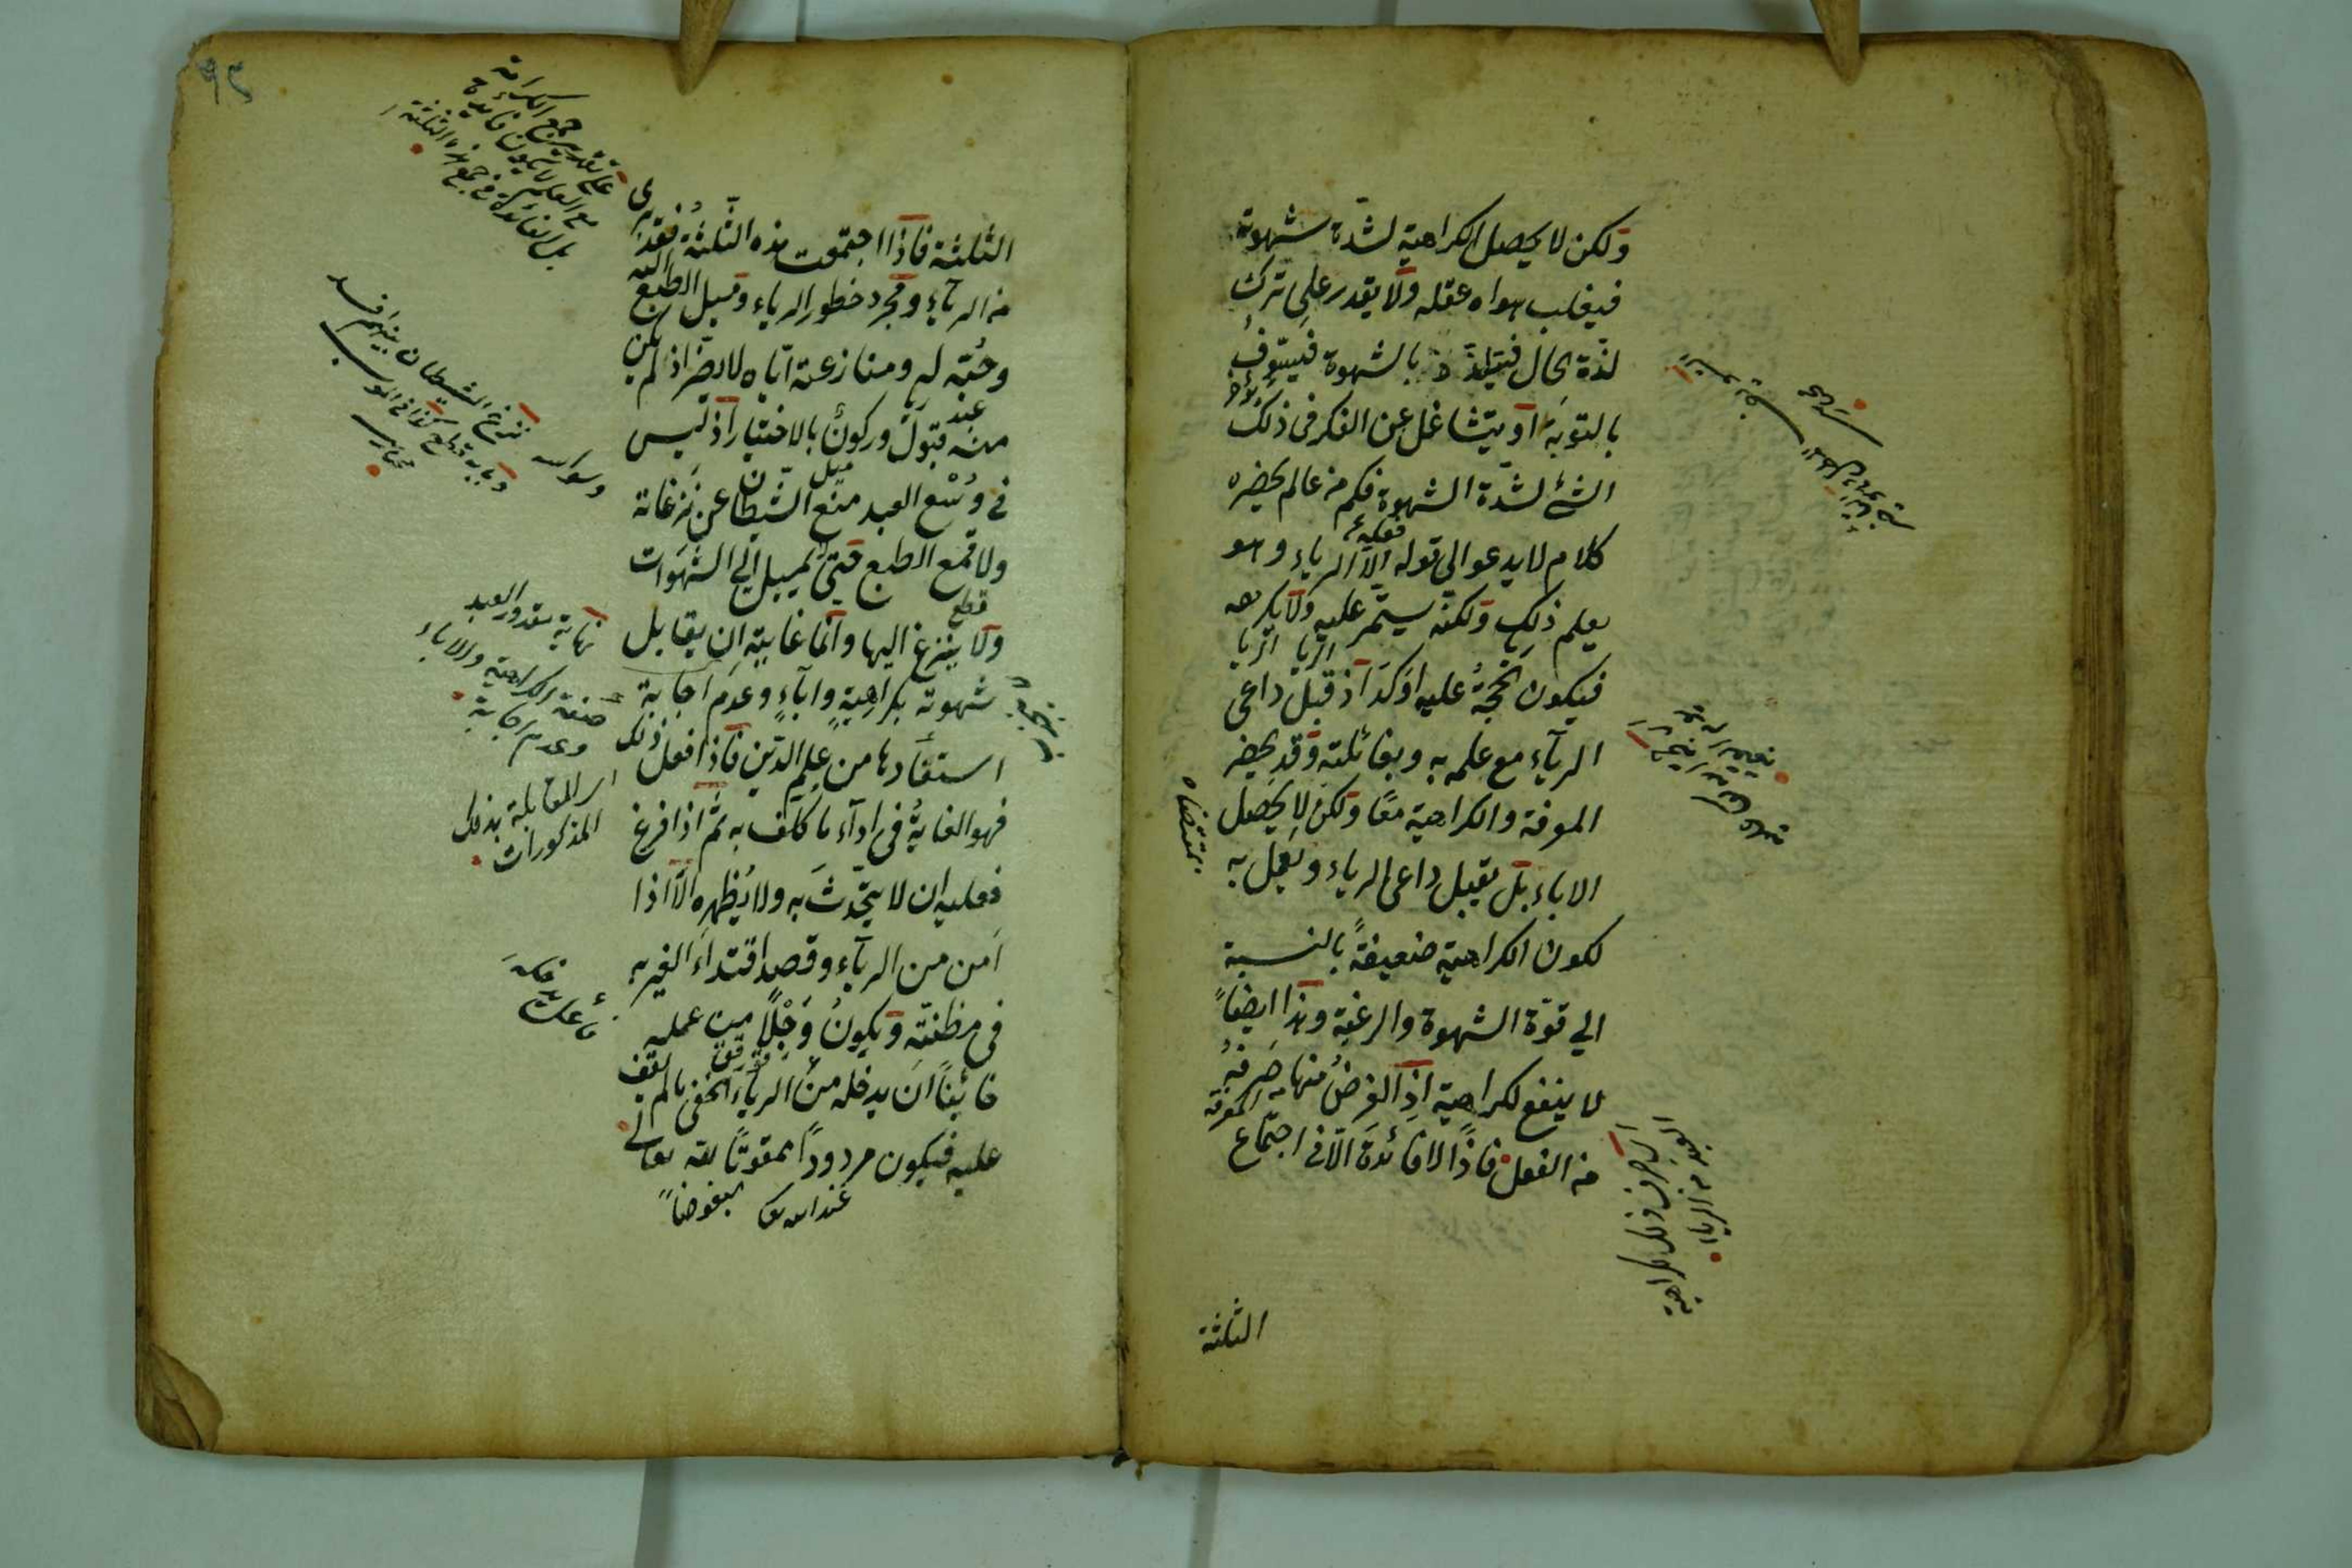 ولكن لا يحصل الكراهية لشدة شهوته
فيغلب هواه عقله ولا يقدر على ترك
لذة الحال فيتلذذ بالشهوة فيسوف
بالتوبة او يتشاغل عن الفكر فى ذلك
الشئ لشدة الشهوة فكم من عالم يحضره
كلام لا يدعو الى قوله الا الرياء وهو
يعلم ذلك ولكنه يستمر عليه ولا يكرهه
فيكون الحجة عليه اوكد اذ قبل داعى
الرياء مع علمه به وبغائلته وقد يحضر
المعرفة والكراهية معا ولكن لا يحصل
الاباء بل يقبل داعى الرياء ويعمل به
بمقتضاه
لكون الكراهية ضعيفة بالنسبة
الي قوة الشهوة والرغبة وهذا ايضا
لا ينفع لكراهية اذ الغرض منها صرفه
من الفعل فاذا لا فائدة الا فى اجتماع
الثلثة
الثلثة فاذا اجتمعت هذه الثلثة فقد برى
من الرياء ومجرد خطور الرياء وميل الطبع اليه
وحبه له ومنازعته اياه لا يضر اذ لم يكن
منه قبول وركون بالاختيار اذ ليس
فى وسع العبد منع الشيطان عن نزغاته
ولا قمع الطبع حتى لا يميل الى الشهوات
ولا ينزع اليها وانما غايته ان يقابل
شهوته بكراهية واباء وعدم اجابة
استفادها من علم الدين فاذا فعل ذلك
فهو الغاية فى اداء ما كلف به ثم اذا فرغ
فعليه ان لا يتحدث به ولا يظهره الا اذا
امن من الرياء وقصد اقتداء الغير به
فى مظنته ويكون وجلا من عمله
خائفا ان يدخله من الرياء الخفى ما لم يقف
عليه فيكون مردودا ممقوتا لله تعالى
عند الله تعا مبغوضا
على تقدير جمع الكراهة
مع العلم لا يكون فائدة
بل الفائدة فى جمع هذه الثلثة
نزغ الشيطان بينهم افسد
نهاية مقدور العبد
صنعة الكراهية والاباء
وعدم اجابة
اى المقابلة بذلك
المذكورات